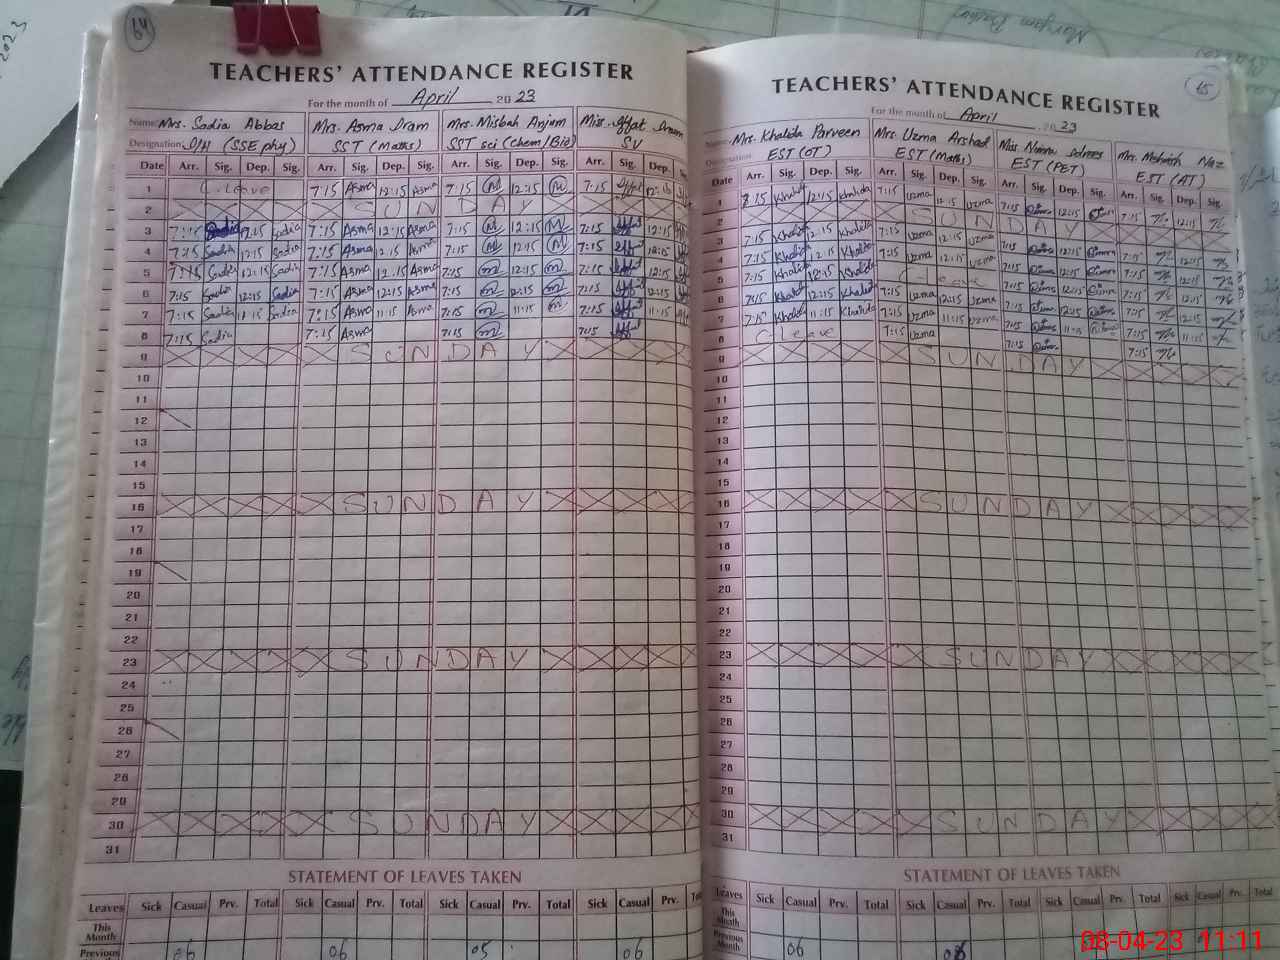 64
TEACHERS' ATTENDANCE REGISTER
For the month of April 2023
Name: Mrs. Sadia Abbas Mrs. Asma Mrs. Misbah Anjum Miss. Iffat
Designation (SSE phy) SST (Maths) SST sci (Chem/Bio) SV
Date Arr. Sig. Dep. Sig. Arr. Sig. Dep. Sig. Arr. Sig. Dep. Sig. Arr. Sig. Dep.
1 C. Leave 7:15 Asma 12:15 Asma 7:15 M 12:15 M 7:15 Iffat
2 SUNDAY
3 7:15 Sadia 12:15 Sadia 7:15 Asma 12:15 Asma 7:15 M 12:15 M 7:15 Iffat 12:15
4 7:15 Sadia 12:15 Sadia 7:15 Asma 12:15 Asma 7:15 M 12:15 M 7:15 Iffat 12:15
5 7:15 Sadia 12:15 Sadia 7:15 Asma 12:15 Asma 7:15 m 12:15 m 7:15 Iffat 12:15
6 7:15 Sadia 12:15 Sadia 7:15 Asma 12:15 Asma 7:15 m 12:15 m 7:15 Iffat 12:15
7 7:15 Sadia 12:15 Sadia 7:15 Asma 11:15 Asma 7:15 m 11:15 m 7:15 Iffat 11:15
8 7:15 Sadia 7:15 Asma 7:15 m 7:15 Iffat
9 SUNDAY
10
11
12
13
14
15
16 SUNDAY
17
18
19
20
21
22
23 SUNDAY
24
25
26
27
28
29
30 SUNDAY
31
STATEMENT OF LEAVES TAKEN
Leaves Sick Casual Prv. Total Sick Casual Prv. Total Sick Casual Prv. Total Sick Casual Prv.
This Month
Previous 06 06 05 06
65
TEACHERS' ATTENDANCE REGISTER
For the month of April 2023
Name: Mrs. Khalida Parveen Mrs. Uzma Arshad Miss. Mrs. Mehwish Naz
Designation EST (OT) EST (Maths) EST (PET) EST (AT)
Date Arr. Sig. Dep. Sig. Arr. Sig. Dep. Sig. Arr. Sig. Dep. Sig. Arr. Sig. Dep. Sig.
1 7:15 Khalida 12:15 Khalida 7:15 Uzma 12:15 Uzma 7:15 12:15 7:15 12:15
2 SUNDAY
3 7:15 Khalida 12:15 Khalida 7:15 Uzma 12:15 Uzma 7:15 12:15 7:15 12:15
4 7:15 Khalida 12:15 Khalida 7:15 Uzma 12:15 Uzma 7:15 12:15 7:15 12:15
5 7:15 Khalida 12:15 Khalida C Leave 7:15 12:15 7:15 12:15
6 7:15 Khalida 12:15 Khalida 7:15 Uzma 12:15 Uzma 7:15 12:15 7:15 12:15
7 7:15 Khalida 11:15 Khalida 7:15 Uzma 11:15 Uzma 7:15 11:15 7:15 11:15
8 C Leave 7:15 Uzma 7:15 7:15
9 SUNDAY
10
11
12
13
14
15
16 SUNDAY
17
18
19
20
21
22
23 SUNDAY
24
25
26
27
28
29
30 SUNDAY
31
STATEMENT OF LEAVES TAKEN
Leaves Sick Casual Prv. Total Sick Casual Prv. Total Sick Casual Prv. Total Sick Casual Prv. Total
This Month
Previous Month 06
08-04-23 11:11